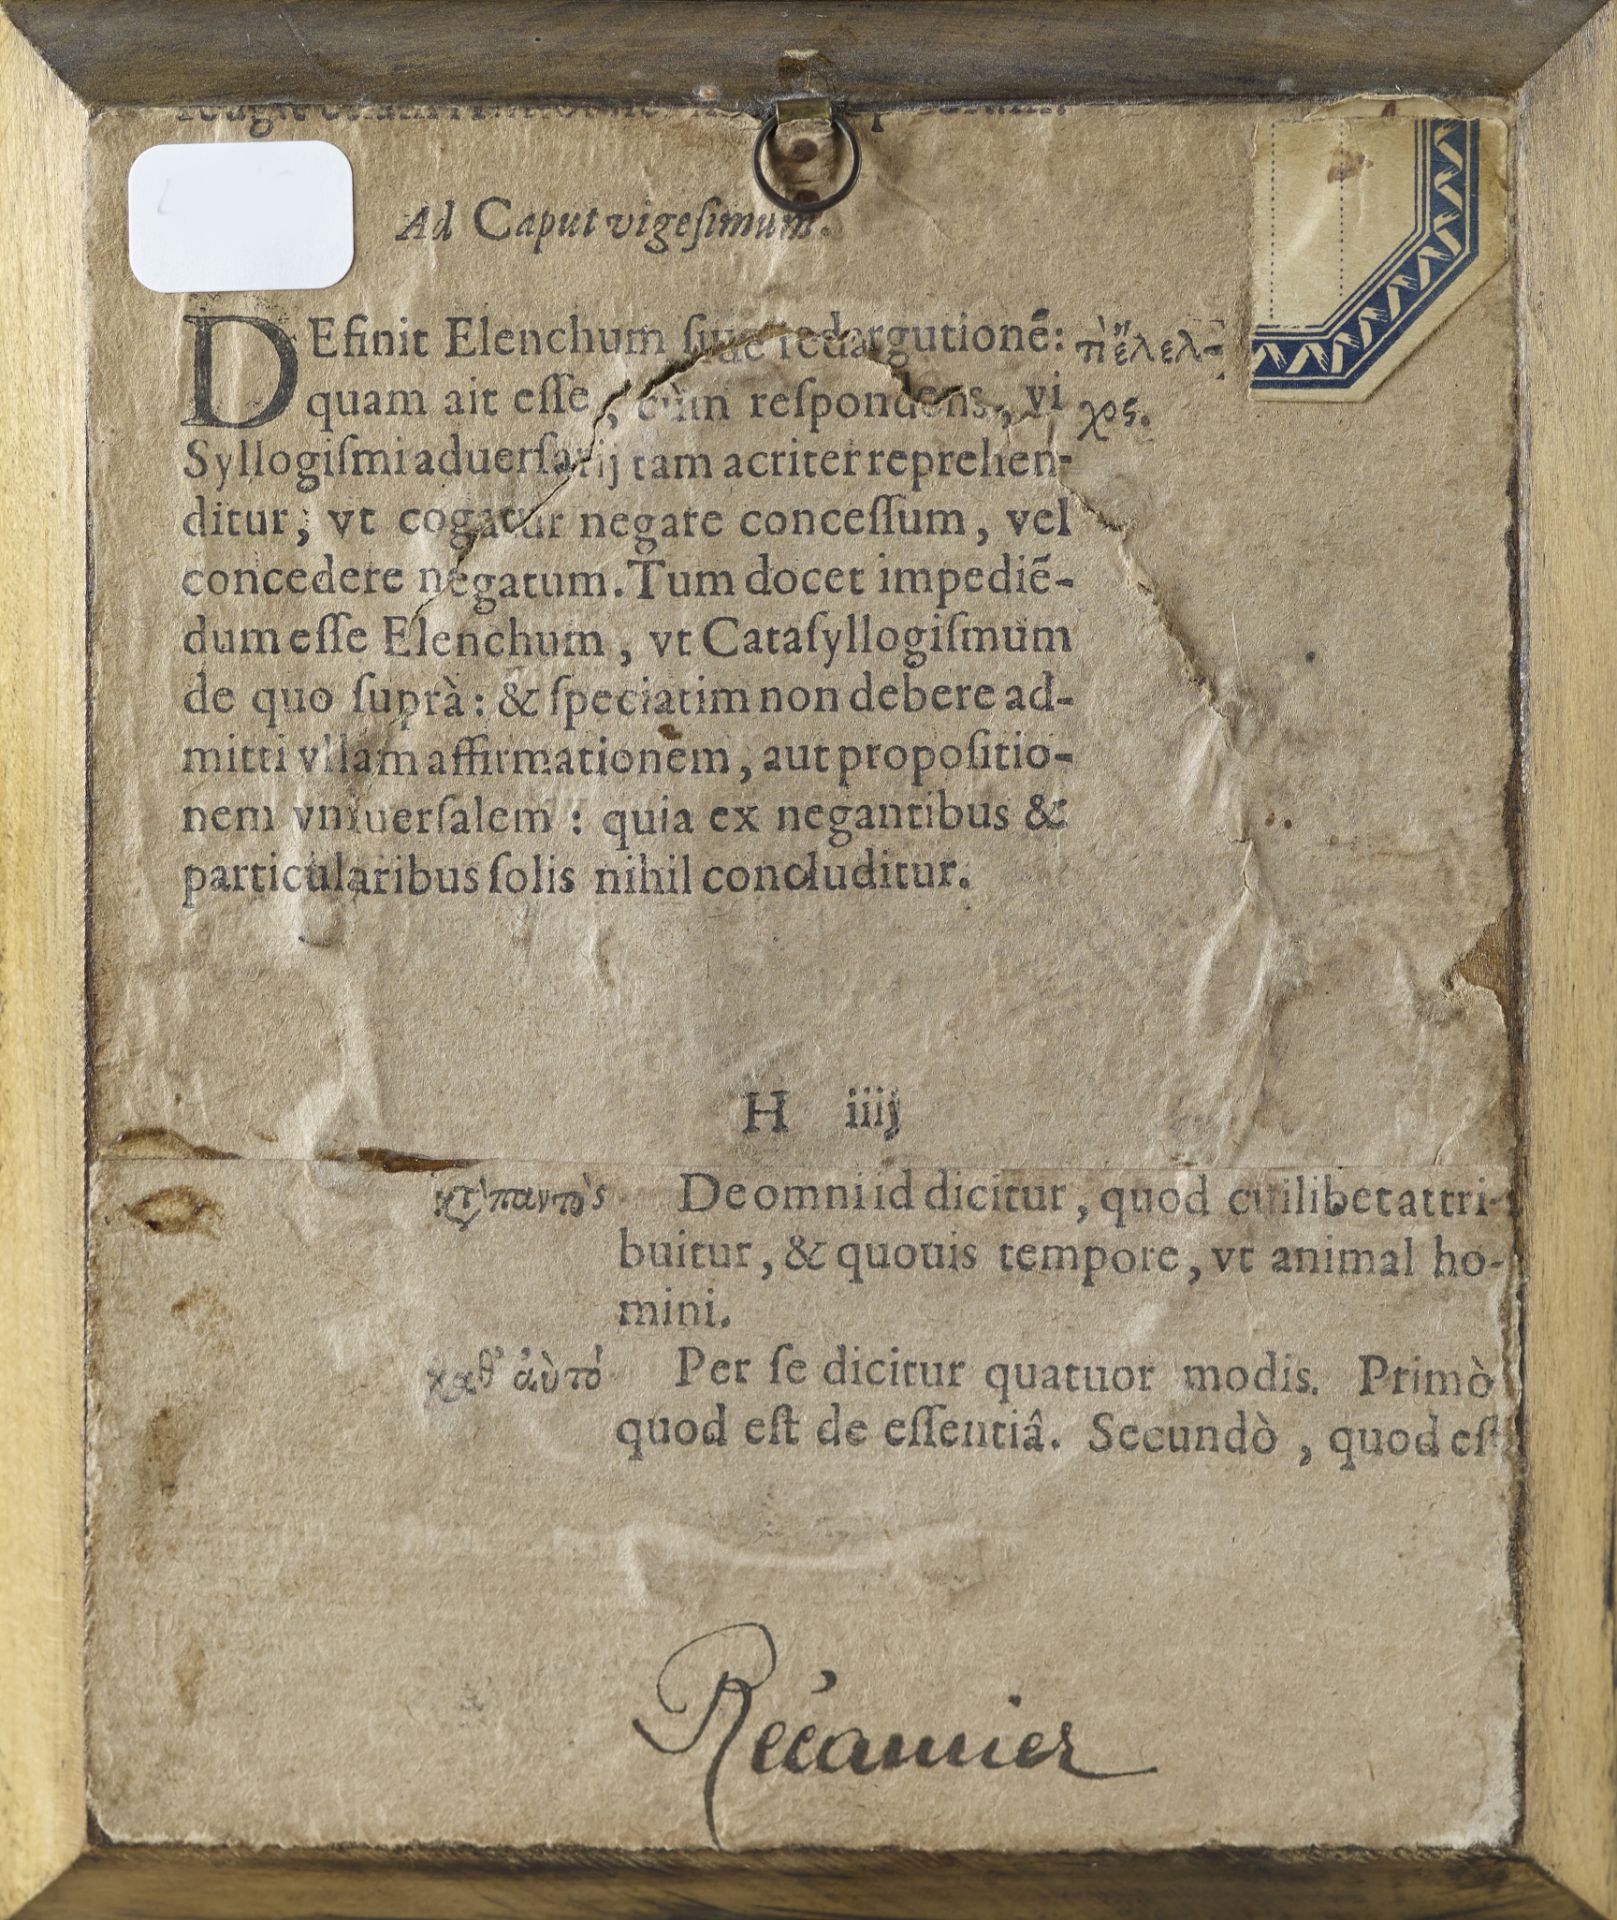 Ad Caput vigeſimum.
DEfinit Elenchum ſiue redargutionẽ:
quam ait eſſe, cùm reſpondens, vi
Syllogiſmi aduerſarij tam acriter reprehen-
ditur, vt cogatur negare conceſſum, vel
concedere negatum. Tum docet impediẽ-
dum eſſe Elenchum, vt Cataſyllogiſmum
de quo ſuprà: & ſpeciatim non debere ad-
mitti vllam affirmationem, aut propoſitio-
nem vniuerſalem: quia ex negantibus &
particularibus ſolis nihil concluditur.
H iiij
De omni id dicitur, quod cuilibet attri-
buitur, & quouis tempore, vt animal ho-
mini.
καθ' αὑτό
Per ſe dicitur quatuor modis. Primò
quod eſt de eſſentiâ. Secundò, quod eſt
Récamier